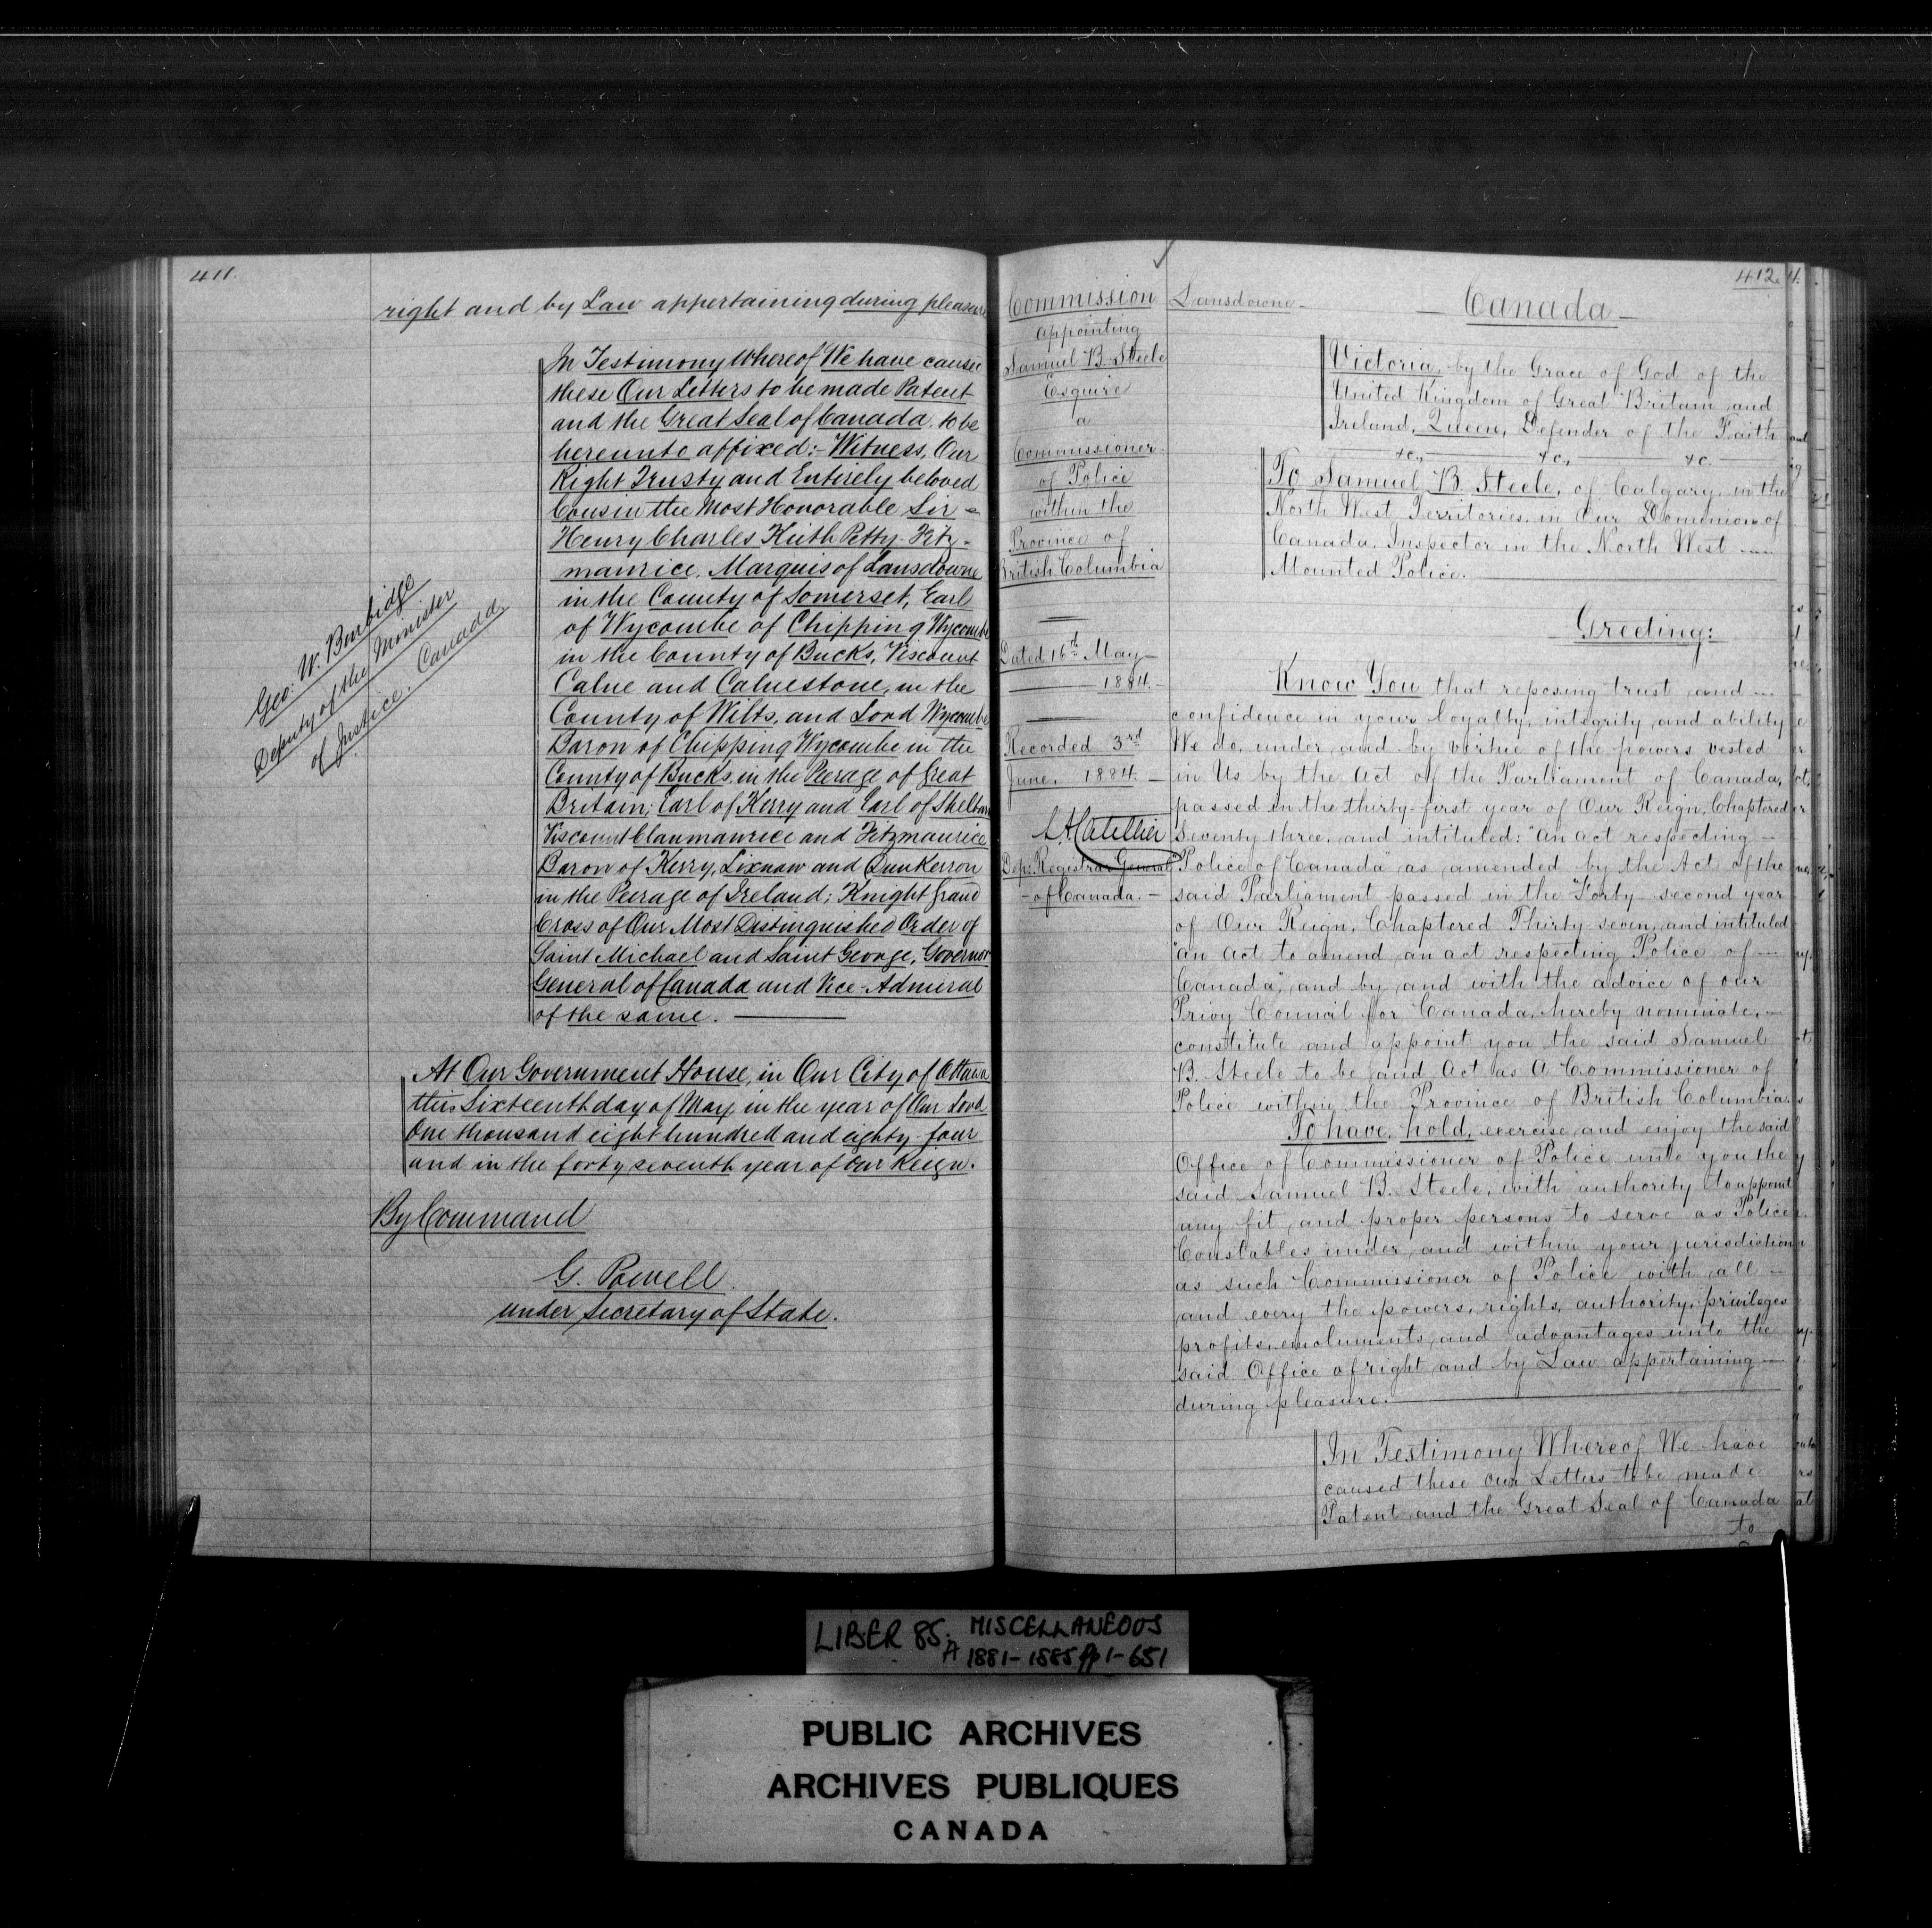 411.
right and by Law appertaining during pleasure
In Testimony Whereof We have cause
these Our Letters to be made Patent
and the Great Seal of Canada, to be
hereunto affixed:- Witness, Our
Right Trusty and Entirely beloved
Cousin the Most Honorable Sir -
Henry Charles Keith Petty-Fitz-
maurice, Marquis of Lansdowne
in the County of Somerset, Earl
of Wycombe of Chipping Wycombe
in the County of Bucks, Viscount
Calne and Calnestone, in the
County of Wilts, and Lord Wycombe
Baron of Chipping Wycombe in the
County of Bucks, in the Peerage of Great
Britain; Earl of Kerry and Earl of Shelburn
Viscount Clanmaurice and Fitzmaurice
Baron of Kerry, Lixnaw and Dunkerron
in the Peerage of Ireland; Knight Grand
Cross of Our Most Distinguished Order of
Saint Michael and Saint George, Governor
General of Canada and Vice-Admiral
of the same.
Geo. W. Burbidge
Deputy of the Minister
of Justice, Canada.
At Our Government House, in Our City of Ottawa
this Sixteenth day of May, in the year of Our Lord
One thousand eight hundred and eighty-four
and in the forty seventh year of Our Reign.
By Command
G. Powell.
under Secretary of State.
412.
Commission
appointing
Samuel B. Steele
Esquire
a
Commissioner
of Police
within the
Province of
British Columbia
Dated 16th May
1884.-
Recorded 3rd
June. 1884.-
Dep: Registrar General
- of Canada. -
Lansdowne -
- Canada -
Victoria, by the Grace of God of the
United Kingdom of Great Britain and
Ireland, Queen, Defender of the Faith
&c., &c., &c.
To Samuel B. Steele, of Calgary, in the
North West Territories, in Our Dominion of
Canada, Inspector in the North West -
Mounted Police.
Greeting:
Know You that reposing trust and -
confidence in your loyalty, integrity and ability
We do, under and by virtue of the powers vested
in Us by the Act of the Parliament of Canada,
passed in the thirty-first year of Our Reign, Chaptered
Seventy three, and intituled: "An Act respecting -
"Police of Canada" as amended by the Act of the
said Parliament passed in the Forty-second year
of Our Reign, Chaptered Thirty-seven, and intituled
"an Act to amend an act respecting Police of -
Canada", and by and with the advice of our
Privy Council for Canada, hereby nominate, -
constitute and appoint you the said Samuel
B. Steele to be and Act as A Commissioner of
Police within the Province of British Columbia.
To have, hold, exercise and enjoy the said
Office of Commissioner of Police unto you the
said Samuel B. Steele, with authority to appoint
any fit and proper persons to serve as Police
Constables under and within your jurisdiction
as such Commissioner of Police with all -
and every the powers, rights, authority, privileges
profits, emoluments, and advantages unto the
said Office of right and by Law appertaining -
during pleasure.
In Testimony Whereof We have
caused these Our Letters to be made
Patent and the Great Seal of Canada
to
LIBER 85. MISCELLANEOUS
A 1881-1885 pp 1-651
PUBLIC ARCHIVES
ARCHIVES PUBLIQUES
CANADA